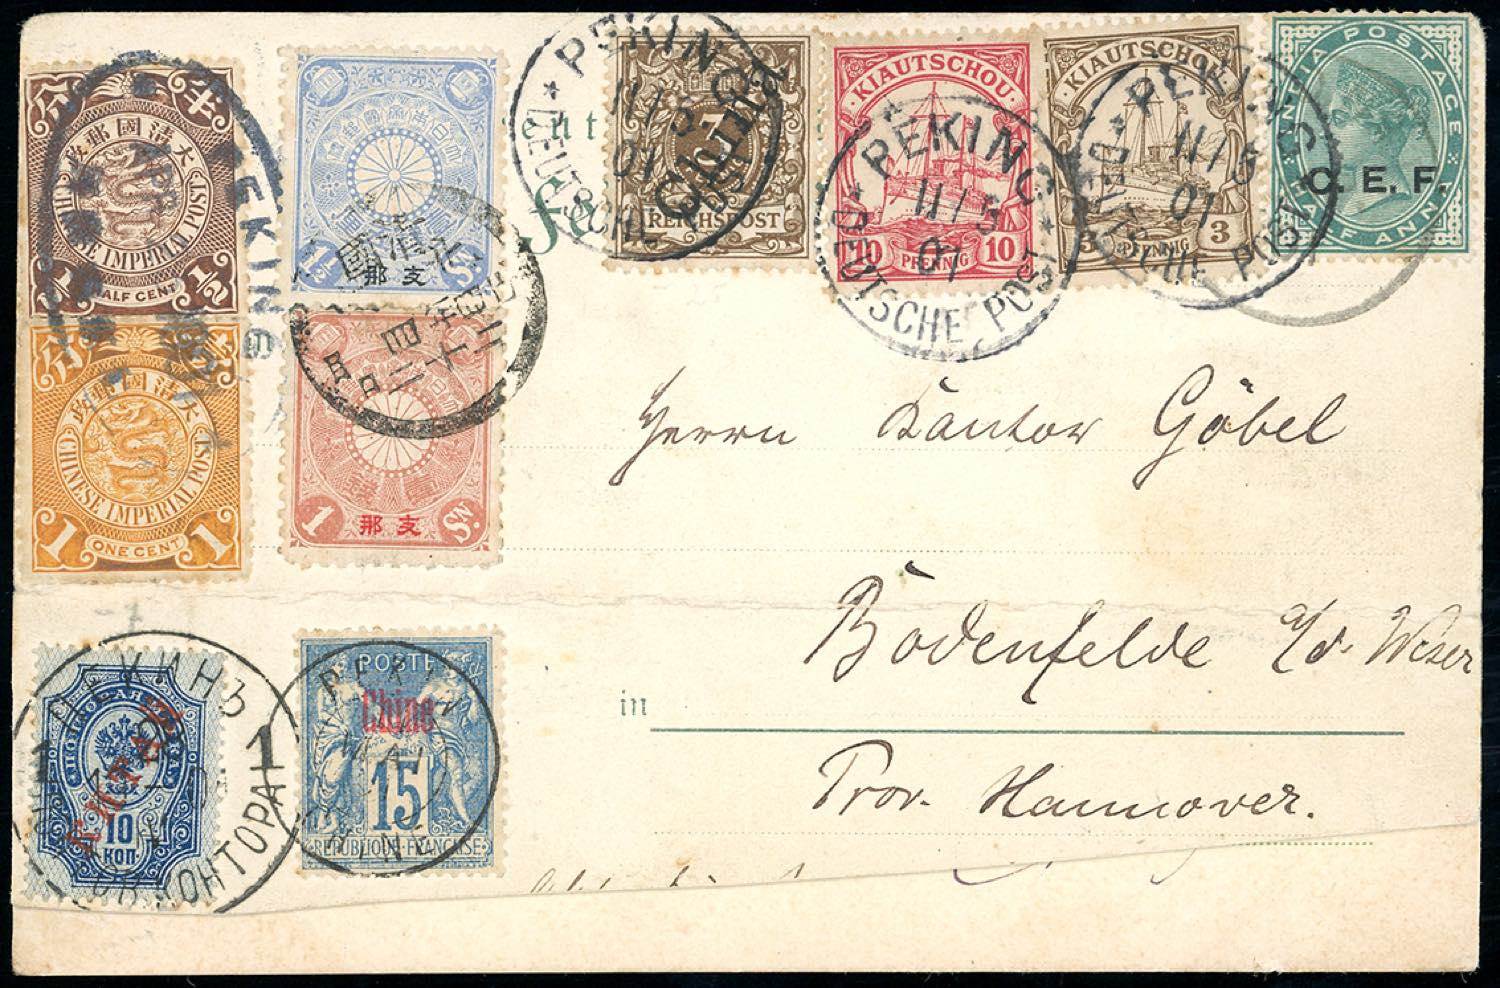 分 半
大清國郵政
CHINESE IMPERIAL POST
½ HALF CENT ½
PEKING
分
大清國郵政
CHINESE IMPERIAL POST
1 ONE CENT 1
1½ Sn.
支那
1 Sn.
支那
PEKING
11/5
01
DEUTSCHE
China
REICHSPOST
KIAUTSCHOU
10 PFENNIG 10
PEKING
11/5
01
DEUTSCHE POST
KIAUTSCHOU
3 PFENNIG 3
PEKING
11/5
01
POST
INDIA POSTAGE
C. E. F.
HALF ANNA
Herrn Kantor Göbel
Bodenfelde a/d. Weser
in
Prov. Hannover.
ПЕКИНЪ
КОНТОРА
КИТАЙ
10
КОП.
1
POSTE
PEKIN
Chine
15
REPUBLIQUE FRANÇAISE
CHINE